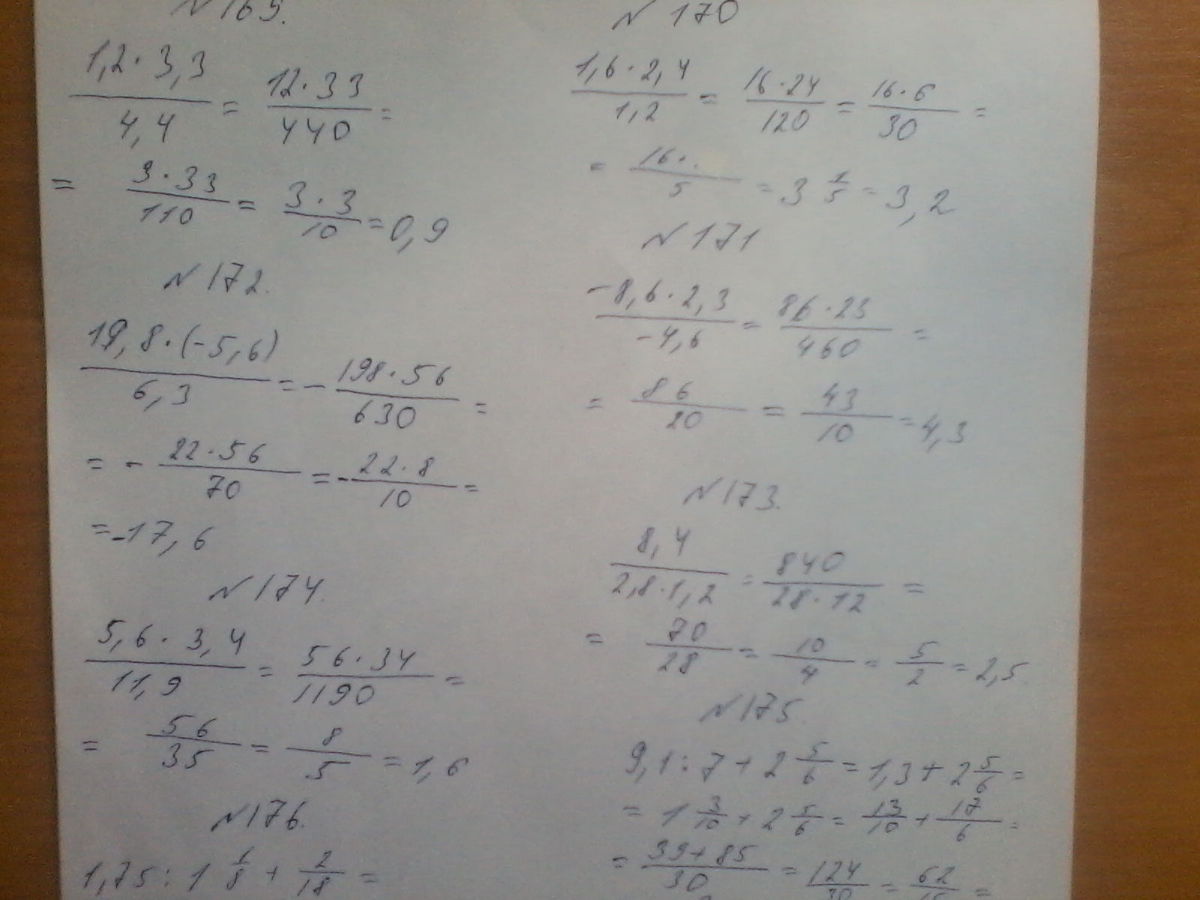 N 169.
1,2 · 3,3 / 4,4 = 12 · 33 / 440 =
= 3 · 33 / 110 = 3 · 3 / 10 = 0,9
N 172.
19,8 · (-5,6) / 6,3 = - 198 · 56 / 630 =
= - 22 · 56 / 70 = - 22 · 8 / 10 =
= -17,6
N 174.
5,6 · 3,4 / 11,9 = 56 · 34 / 1190 =
= 56 / 35 = 8 / 5 = 1,6
N 176.
1,75 : 1 1/8 + 2/18 =
N 170
1,6 · 2,4 / 1,2 = 16 · 24 / 120 = 16 · 6 / 30 =
= 16 · / 5 = 3 1/5 = 3,2
N 171
-8,6 · 2,3 / -4,6 = 86 · 23 / 460 =
= 86 / 20 = 43 / 10 = 4,3
N 173.
8,4 / 2,8 · 1,2 = 840 / 28 · 12 =
= 70 / 28 = 10 / 4 = 5 / 2 = 2,5
N 175.
9,1 : 7 + 2 5/6 = 1,3 + 2 5/6 =
= 1 3/10 + 2 5/6 = 13/10 + 17/6 =
= 39 + 85 / 30 = 124 / 30 = 62 / 15 =